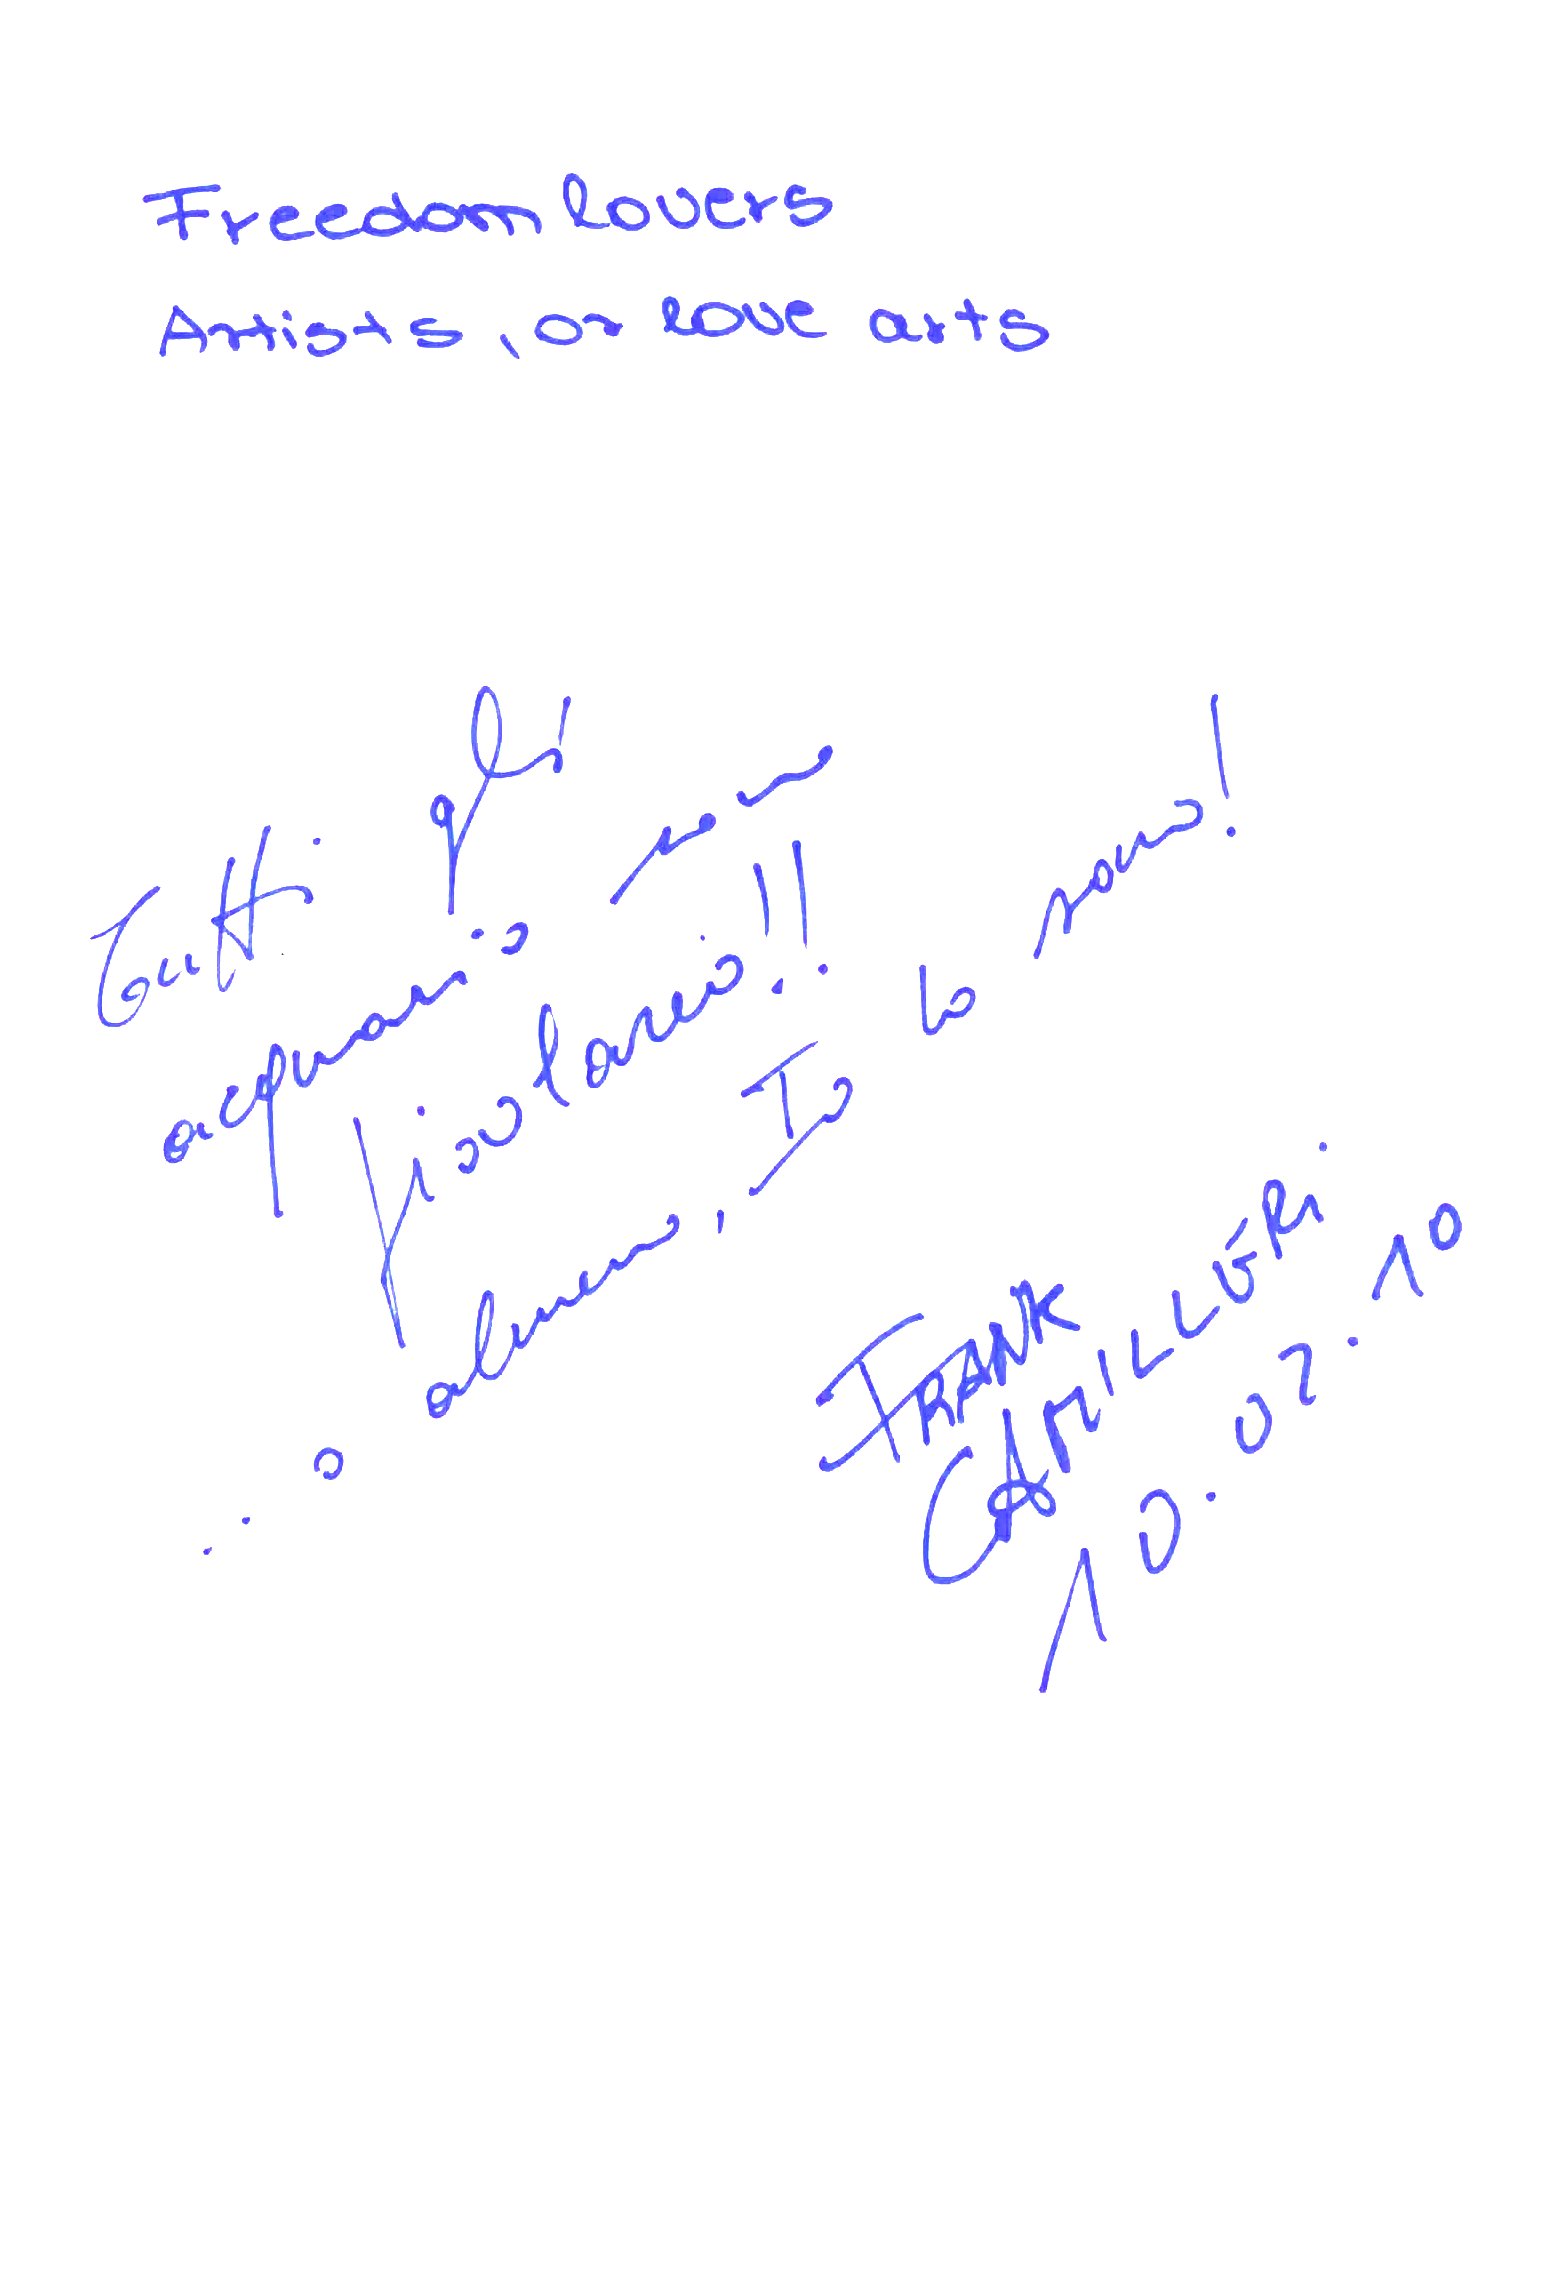 Freedom lovers
Artists, or love arts
Tutti gli
acquario sono
fiovlario!!
.. o almeno, Io lo sono!
FRANK
CAMILLERi
10.02.10